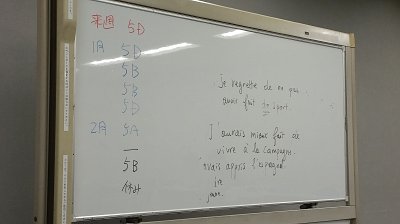 来週 5D
1月 5D
5B
5B
5D
2月 5A
一
5B
je regrette de ne pas
avoir fait du sport.
J'aurais mieux fait de
vivre à la campagne
appris l'espagnol